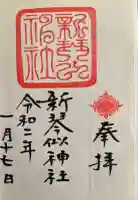 奉拝
新琴似神社
新琴似神社
令和二年
一月十七日